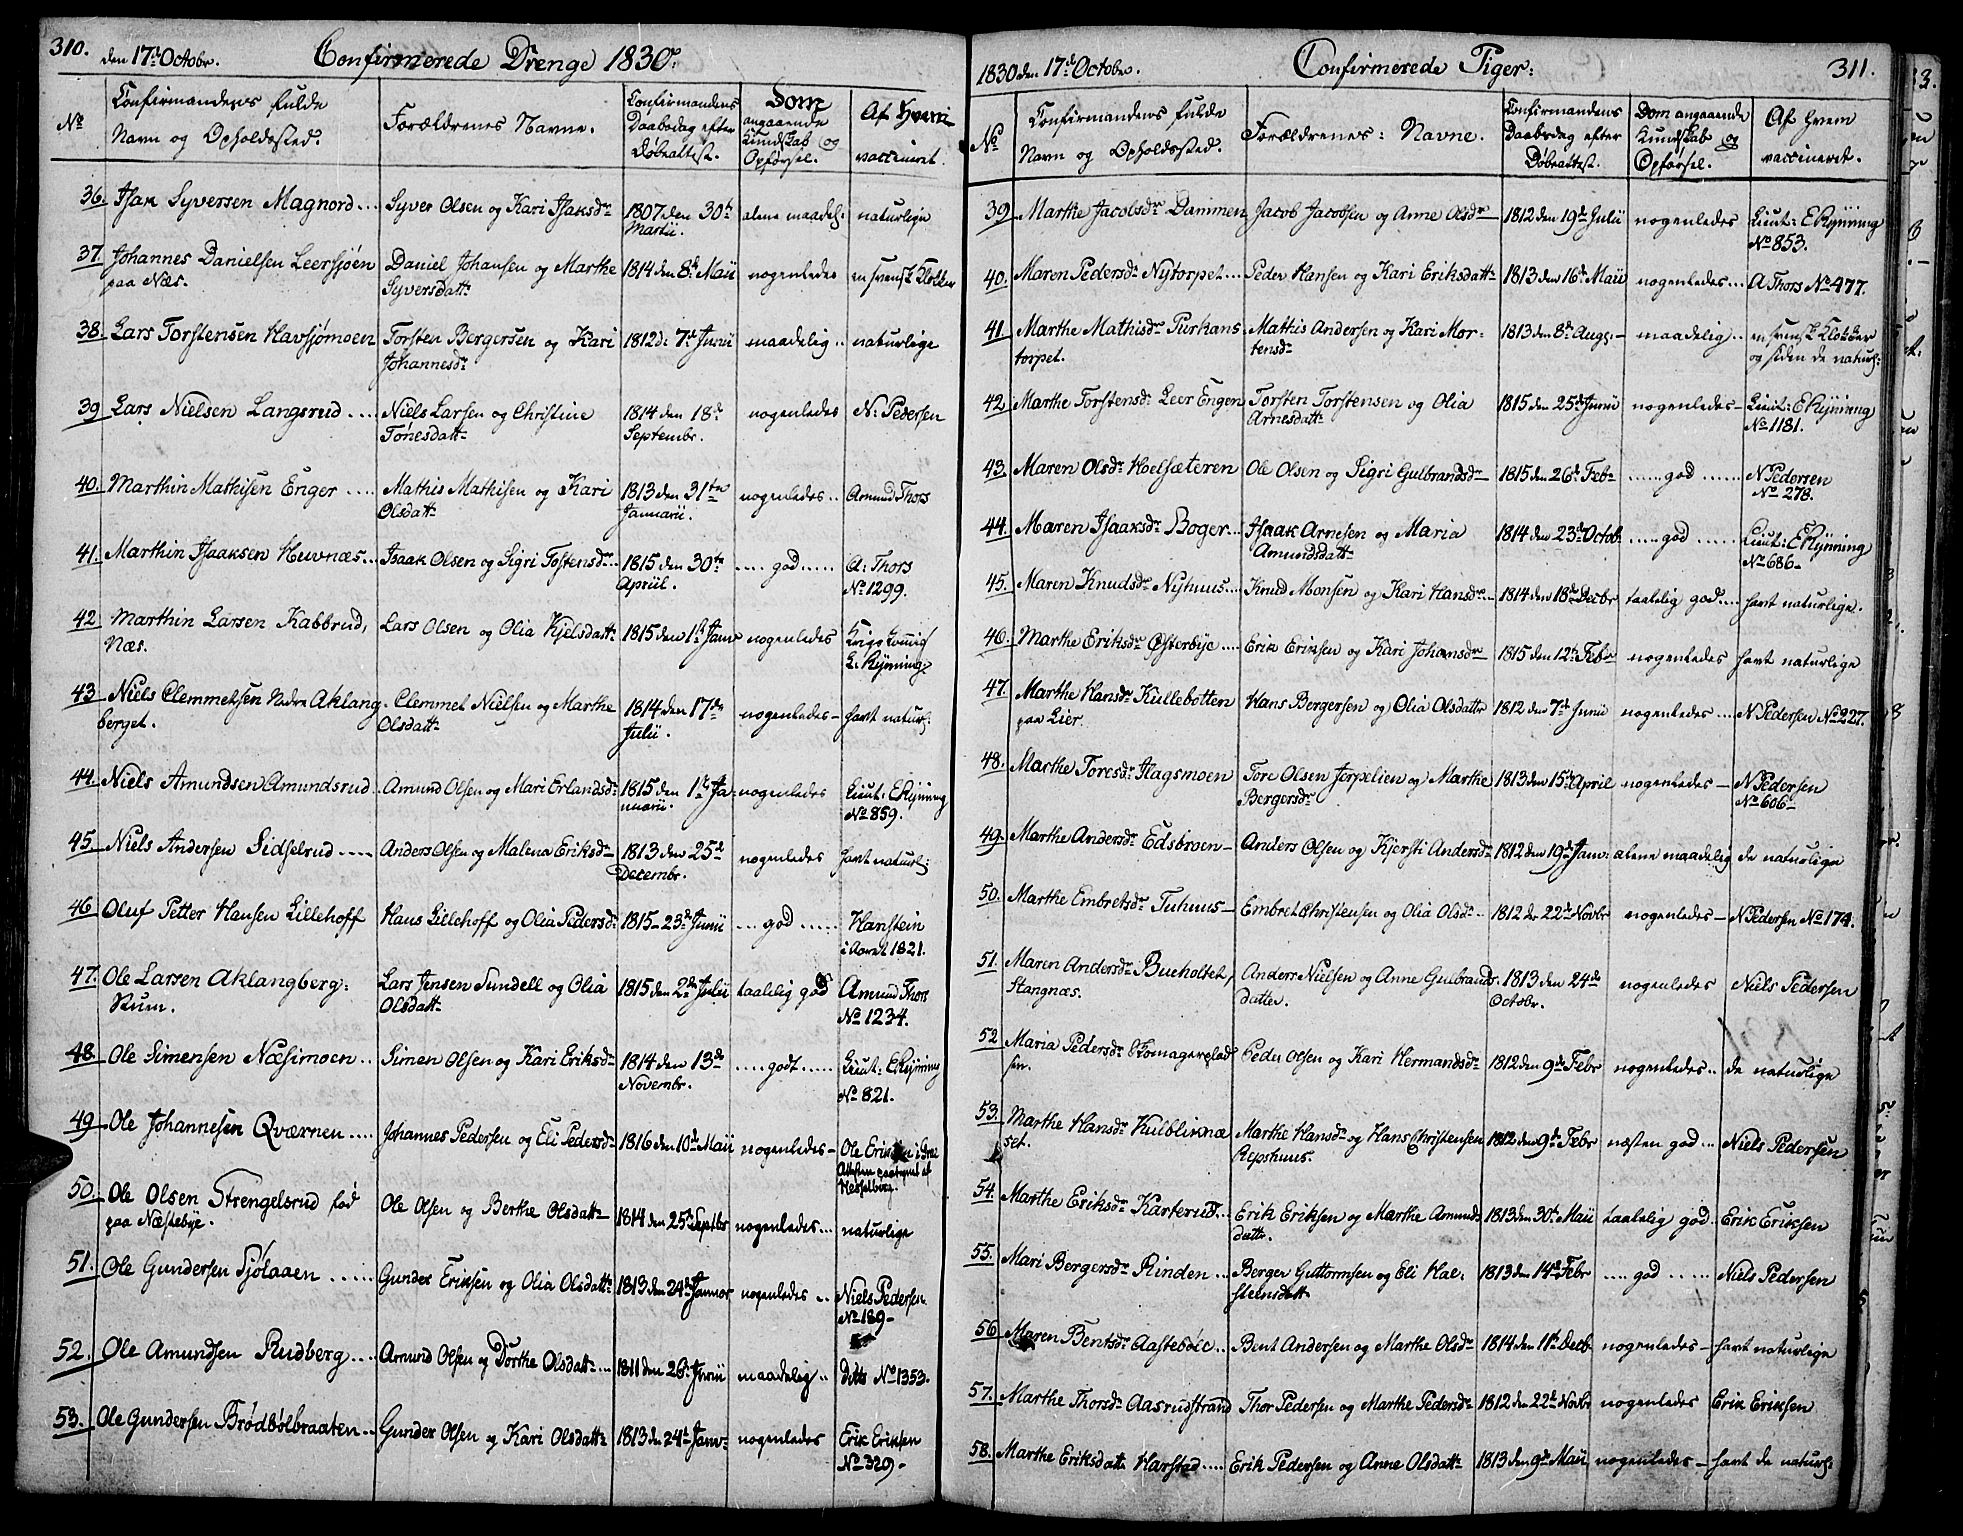 310. den 17d Octobr. Confirmerede Drenge 1830.
No
Confirmandens fulde Navn og Opholdssted.
Forældrenes Navne.
Confirmandens Daabsdag efter Døbeattest.
Dom angaaende Kundskab og Opførsel.
Af Hvem vaccineret.
36. Isak Syversen Magnord... Syver Olsen og Kari Isaksdr 1807 den 30te alene maadel: naturlige
Martii.
37. Johannes Danielsen Leersjøen Daniel Johansen og Marthe 1814 den 8de Maii nogenledes en svensk Klokker
paa Næs. Syversdatt
38. Lars Torstensen Havsjømoen Torsten Bergersen og Kari 1812 d: 7d Junii maadelig .. naturlige
Johannesdr
39 Lars Nielsen Langsrud .... Niels Larsen og Christine 1814 den 18de nogenledes N: Pedersen
Tønesdatt Septembr.
40. Marthin Mathisen Enger .... Mathis Mathisen og Kari 1813 den 31te nogenledes.. Amund Thors
Olsdatt Januarii.
41. Marthin Isaaksen Huvnæs... Isaak Olsen og Sigri Tostensdr.. 1815 den 30te .... god..... A: Thors
Apriil. No 1299.
42. Marthin Larsen Kabbrud, Lars Olsen og Olia Kjelsdatt 1815 den 1st Janr nogenledes
Næs. E. Rynning.
43 Niels Clemmetsen Nedre Aklang. Clemmet Nielsen og Marthe 1814 den 17de nogenledes- havt naturl:
berget. Olsdatt Julii.
44. Niels Amundsen Amundsrud. Amund Olsen og Mari Erlandsdr 1815 den 1st Ja: nogenledes Lieut: E Rynning
nuarii. No 859.
45. Niels Andersen Sidselrud ---- Anders Olsen og Malena Eriksdr 1813 den 25de nogenledes havt naturl:
Decembr.
46 Oluf Petter Hansen Lillehoff Hans Lillehoff og Olia Pedersdr 1815- 23d Junii ... god ..... Hanstein
i Aaret 1821.
47. Ole Larsen Aklangberg: Lars Jensen Sundell og Olia 1815 den 2den Julii taalelig god Amund Thors
Rum. Olsdatt No 1234.
48 Ole Simensen Næsimoen .. Simen Olsen og Kari Eriksdr 1814 den 13de ....godt..... Lieut: E Rynning
Novembr. No 821.
49 Ole Johannesen Qværnen .... Johannes Pedersen og Eli Pedersdr 1816 den 10de Maii nogenledes- Ole Eriksen i Brei
Attesten paategnet af
Hesselberg.
50. Ole Olsen Strengelsrud fød Ole Olsen og Berthe Olsdatt 1814 den 25de Septbr nogenledes... naturlige
paa Næstebye.
51. Ole Gundersen Sjølaaen ...... Gunder Eriksen og Olia Olsdatt 1813 den 24de Januar nogenledes .. Niels Pedersen
No 189-
52. Ole Amundsen Rudberg.... Amund Olsen og Dorthe Olsdatt.... 1811 den 26d Junii maadelig .. ditto No 1353.
53. Ole Gundersen Brødbølbraaten.. Gunder Olsen og Kari Olsdatt 1813 den 24d Janv- nogenledes Erik Eriksen
No 329-
1830 den 17d Octobr. Confirmerede Piger: 311.
No
Confirmandens fulde Navn og Opholdssted.
Forældrenes: Navne.
Confirmandens Daabsdag efter Døbeattest.
Dom angaaende Kundskab og Opførsel.
Af hvem vaccineret.
39 Marthe Jacobsdr Dammen Jacob Jacobsen og Anne Olsdr 1812 den 19de Julii nogenledes Lieut: E Rynning
No 853.
40. Maren Pedersdr Nytorpet... Peder Hansen og Kari Eriksdatt 1813 den 16de Maii nogenledes... A Thors No 477.
41. Marthe Mathisdr Purkans Mathis Andersen og Kari Mor- 1813 den 8de Augs:- maadelig.. en svensk Klokker
torpet. tensdr og siden de naturl:
42 Marthe Torstensd: Leer Engen Torsten Torstensen og Olia 1815 den 25d Junii nogenledes- Lieut: E Rynning
Arnesdatt No 1181.
43. Maren Olsdr Hoelsæteren Ole Olsen og Sigri Gulbrandsdr 1815 den 26d Febr .....god ...... N Pedersen
No 278.
44. Maren Isaaksdr Boger... Isaak Arnesen og Maria 1814 den 23d Octob. .....god ...... Lieut: E Rynning
Amundsdatt No 686-
45. Maren Knudsdr Nyhuus.... Knud Monsen og Kari Hansdr.. 1814 den 18de Decbr taalelig god.... havt naturlige.
46. Marthe Eriksdr Østerbye .... Erik Eriksen og Kari Johansdr 1815 den 12te Febr nogenledes havt naturlige
47. Marthe Hansdr Kullebotten Hans Bergersen og Olia Olsdattr 1812 den 7d Junii nogenledes ... N Pedersen No 227.
paa Lier.
48. Marthe Toresdr Hagsmoen Tore Olsen Torpelien og Marthe 1813 den 15de April nogenledes - N Pedersen
Bergersdr No 606-
49. Marthe Andersdr Edsbroen- Anders Olsen og Kjersti Andersdr 1812 den 19de Janv: alene maadelig de naturlige
50. Marthe Embretsdr Tuhuus- Embret Christensen og Olia Olsdr.. 1812 de 22de Novbr nogenledes- N Pedersen No 174.
51. Maren Andersdr Bueholtet, Anders Nielsen og Anne Gulbrands. 1813 den 24de nogenledes Niels Pedersen
Stangnæs. datter. Octobr.
52 Maria Pedersdr Skomagerplad Peder Olsen og Kari Hermandsdr 1812 den 9de Febr nogenledes.. de naturlige
sen.
53. Marthe Hansdr Kulblixnæ Marthe Hansdr og Hans Christensen 1812 den 9de Febr næsten god ... Niels Pedersen
set. Repshuus.
54. Marthe Eriksdr Karterud.. Erik Eriksen og Marthe Amunds 1813 den 30te Maii taalelig god.. Erik Eriksen
dattr.
55. Mari Bergersdr Rinden .. Berger Guttormsen og Eli Hal- 1813 den 14de Febr .... god ..... Niels Pedersen
steensdatt
56 Maren Bentsdr Aastebøle.. Bent Andersen og Marthe Olsdr 1814 den 11te Decb nogenledes- havt naturlige
57. Marthe Thorsdr Aasrudstrand Thor Pedersen og Marthe Pedersdr 1812 den 22de Novbr nogenledes Erik Eriksen
58. Marthe Eriksdatt Harstad .... Erik Pedersen og Anne Olsdatt 1813 den 9de Maii nogenledes- havt de naturl: